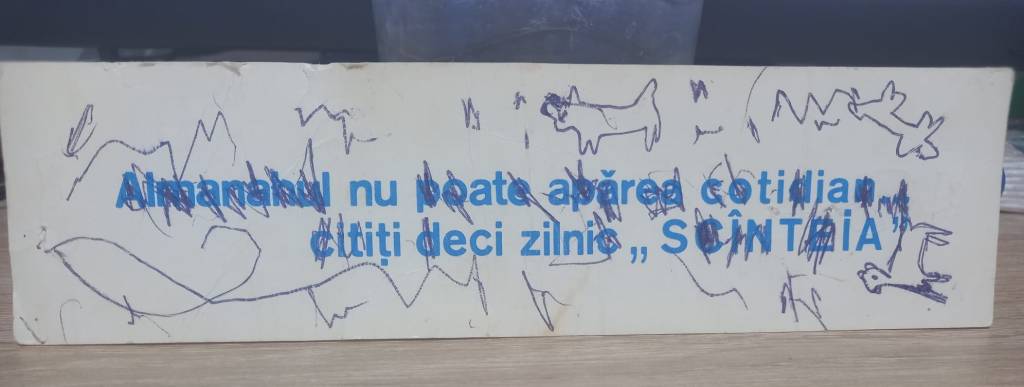 Almanahul nu poate apărea cotidian,
citiți deci zilnic „SCÎNTEIA”